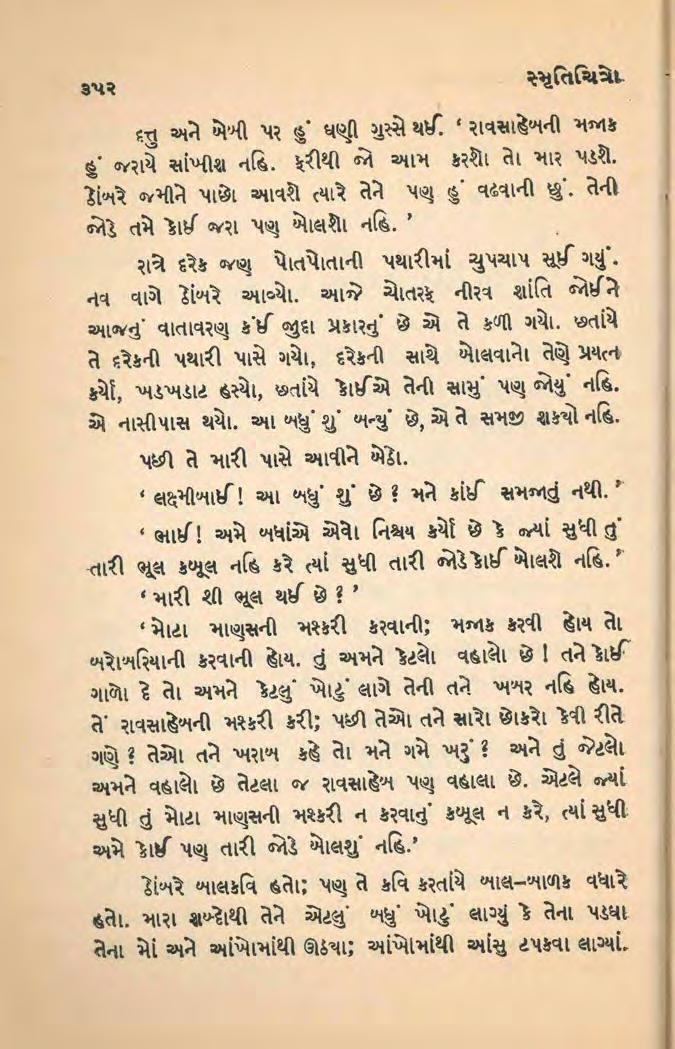 ૩૫૨
સ્મૃતિચિત્રો
દત્તુ અને બેબી પર હું ઘણી ગુસ્સે થઈ. ‘ રાવસાહેબની મજાક
હું જરાયે સાંખીશ નહિ. ફરીથી જો આમ કરશો તો માર પડશે.
ઠોંબરે જમીને પાછો આવશે ત્યારે તેને પણ હું વઢવાની છું. તેની
જોડે તમે કોઈ જરા પણ બોલશો નહિ. ’
રાત્રે દરેક જણ પોતપોતાની પથારીમાં ચુપચાપ સૂઈ ગયું.
નવ વાગે ઠોંબરે આવ્યો. આજે ચોતરફ નીરવ શાંતિ જોઈને
આજનું વાતાવરણ કંઈ જુદા પ્રકારનું છે એ તે કળી ગયો. છતાંયે
તે દરેકની પથારી પાસે ગયો, દરેકની સાથે બોલવાનો તેણે પ્રયત્ન
કર્યો, ખડખડાટ હસ્યો, છતાંયે કોઈએ તેની સામું પણ જોયું નહિ.
એ નાસીપાસ થયો. આ બધું શું બન્યું છે, એ તે સમજી શક્યો નહિ.
પછી તે મારી પાસે આવીને બેઠો.
‘ લક્ષ્મીબાઈ! આ બધું શું છે ? મને કાંઈ સમજાતું નથી. ’
‘ ભાઈ! અમે બધાંએ એવો નિશ્ચય કર્યો છે કે જ્યાં સુધી તું
તારી ભૂલ કબૂલ નહિ કરે ત્યાં સુધી તારી જોડે કોઈ બોલશે નહિ. ’
‘ મારી શી ભૂલ થઈ છે ? ’
‘ મોટા માણસની મશ્કરી કરવાની; મજાક કરવી હોય તો
બરોબરિયાની કરવાની હોય. તું અમને કેટલો વહાલો છે ! તને કોઈ
ગાળો દે તો અમને કેટલું ખોટું લાગે તેની તને ખબર નહિ હોય.
તેં રાવસાહેબની મશ્કરી કરી; પછી તેઓ તને સારો છોકરો કેવી રીતે
ગણે ? તેઓ તને ખરાબ કહે તો મને ગમે ખરું ? અને તું જેટલો
અમને વહાલો છે તેટલા જ રાવસાહેબ પણ વહાલા છે. એટલે જ્યાં
સુધી તું મોટા માણસની મશ્કરી ન કરવાનું કબૂલ ન કરે, ત્યાં સુધી
અમે કોઈ પણ તારી જોડે બોલશું નહિ.’
ઠોંબરે બાલકવિ હતો; પણ તે કવિ કરતાંયે બાલ–બાળક વધારે
હતો. મારા શબ્દોથી તેને એટલું બધું ખોટું લાગ્યું કે તેના પડઘા
તેના મોં અને આંખોમાંથી ઊઠવા; આંખોમાંથી આંસુ ટપકવા લાગ્યાં.